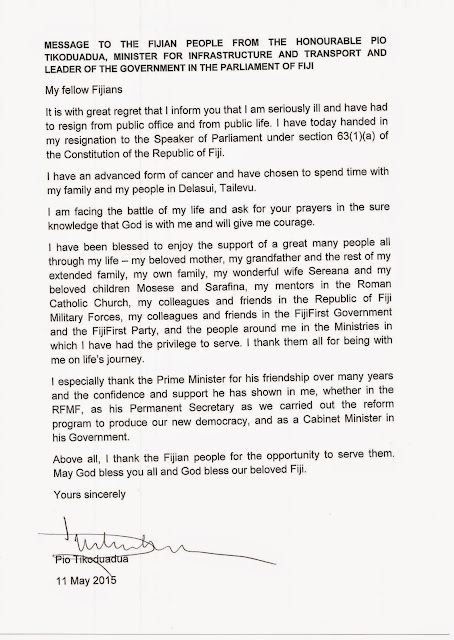 MESSAGE TO THE FIJIAN PEOPLE FROM THE HONOURABLE PIO
TIKODUADUA, MINISTER FOR INFRASTRUCTURE AND TRANSPORT AND
LEADER OF THE GOVERNMENT IN THE PARLIAMENT OF FIJI
My fellow Fijians
It is with great regret that I inform you that I am seriously ill and have had
to resign from public office and from public life. I have today handed in
my resignation to the Speaker of Parliament under section 63(1)(a) of
the Constitution of the Republic of Fiji.
I have an advanced form of cancer and have chosen to spend time with
my family and my people in Delasui, Tailevu.
I am facing the battle of my life and ask for your prayers in the sure
knowledge that God is with me and will give me courage.
I have been blessed to enjoy the support of a great many people all
through my life – my beloved mother, my grandfather and the rest of my
extended family, my own family, my wonderful wife Sereana and my
beloved children Mosese and Sarafina, my mentors in the Roman
Catholic Church, my colleagues and friends in the Republic of Fiji
Military Forces, my colleagues and friends in the FijiFirst Government
and the FijiFirst Party, and the people around me in the Ministries in
which I have had the privilege to serve. I thank them all for being with
me on life's journey.
I especially thank the Prime Minister for his friendship over many years
and the confidence and support he has shown in me, whether in the
RFMF, as his Permanent Secretary as we carried out the reform
program to produce our new democracy, and as a Cabinet Minister in
his Government.
Above all, I thank the Fijian people for the opportunity to serve them.
May God bless you all and God bless our beloved Fiji.
Yours sincerely
Pio Tikoduadua
11 May 2015